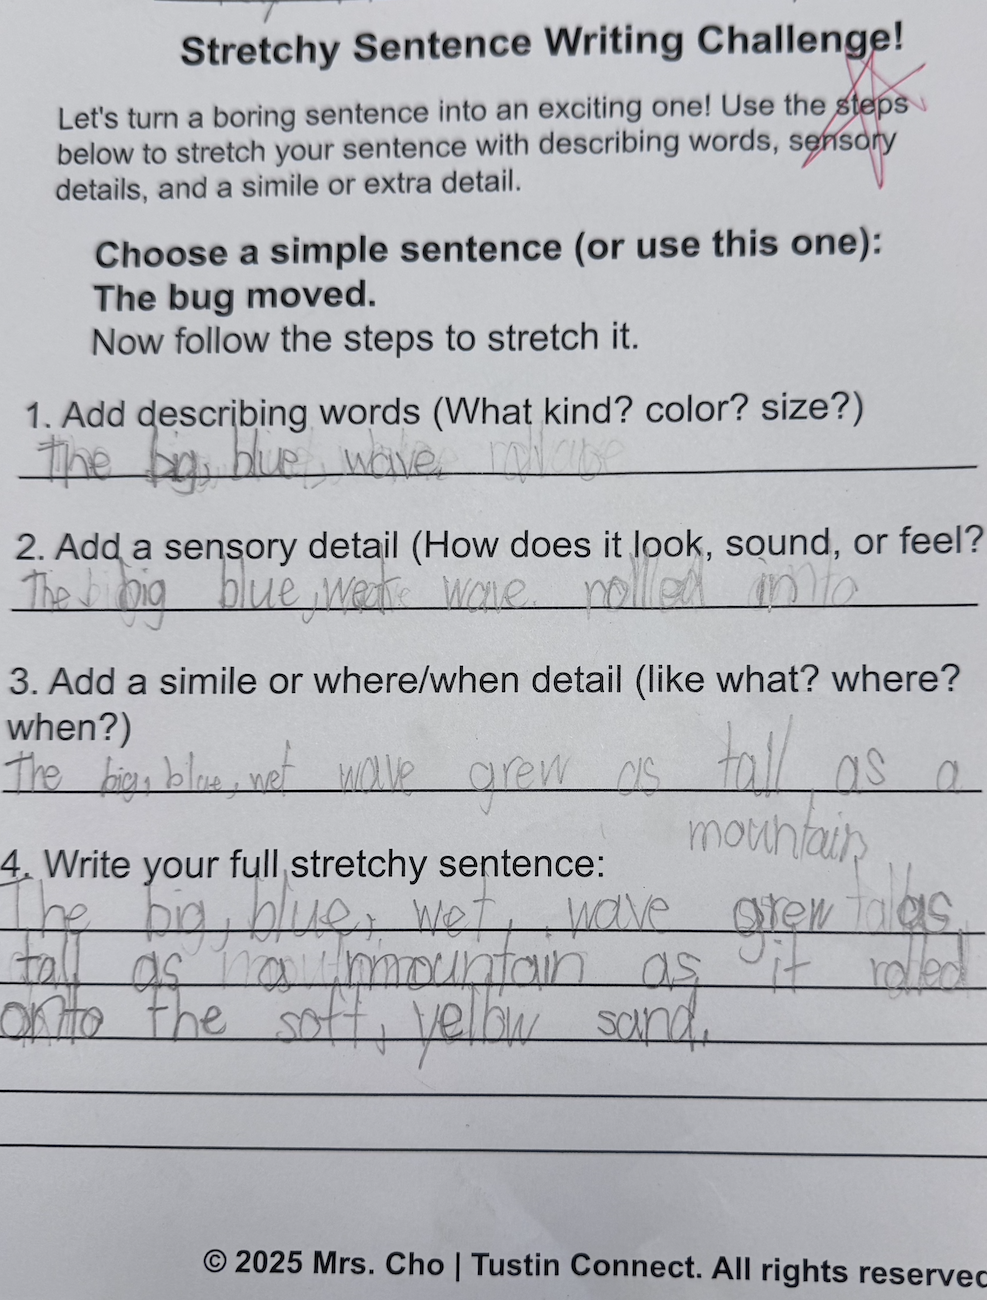 Stretchy Sentence Writing Challenge!
Let's turn a boring sentence into an exciting one! Use the steps
below to stretch your sentence with describing words, sensory
details, and a simile or extra detail.
Choose a simple sentence (or use this one):
The bug moved.
Now follow the steps to stretch it.
1. Add describing words (What kind? color? size?)
The big, blue, wave,
2. Add a sensory detail (How does it look, sound, or feel?
The big blue, wet wave. rolled into
3. Add a simile or where/when detail (like what? where?
when?)
The big, blue, wet wave grew as tall as a
mountain,
4. Write your full stretchy sentence:
The big, blue, wet, wave grew as
tall as a mountain as it rolled
onto the soft, yellow sand.
© 2025 Mrs. Cho | Tustin Connect. All rights reserved